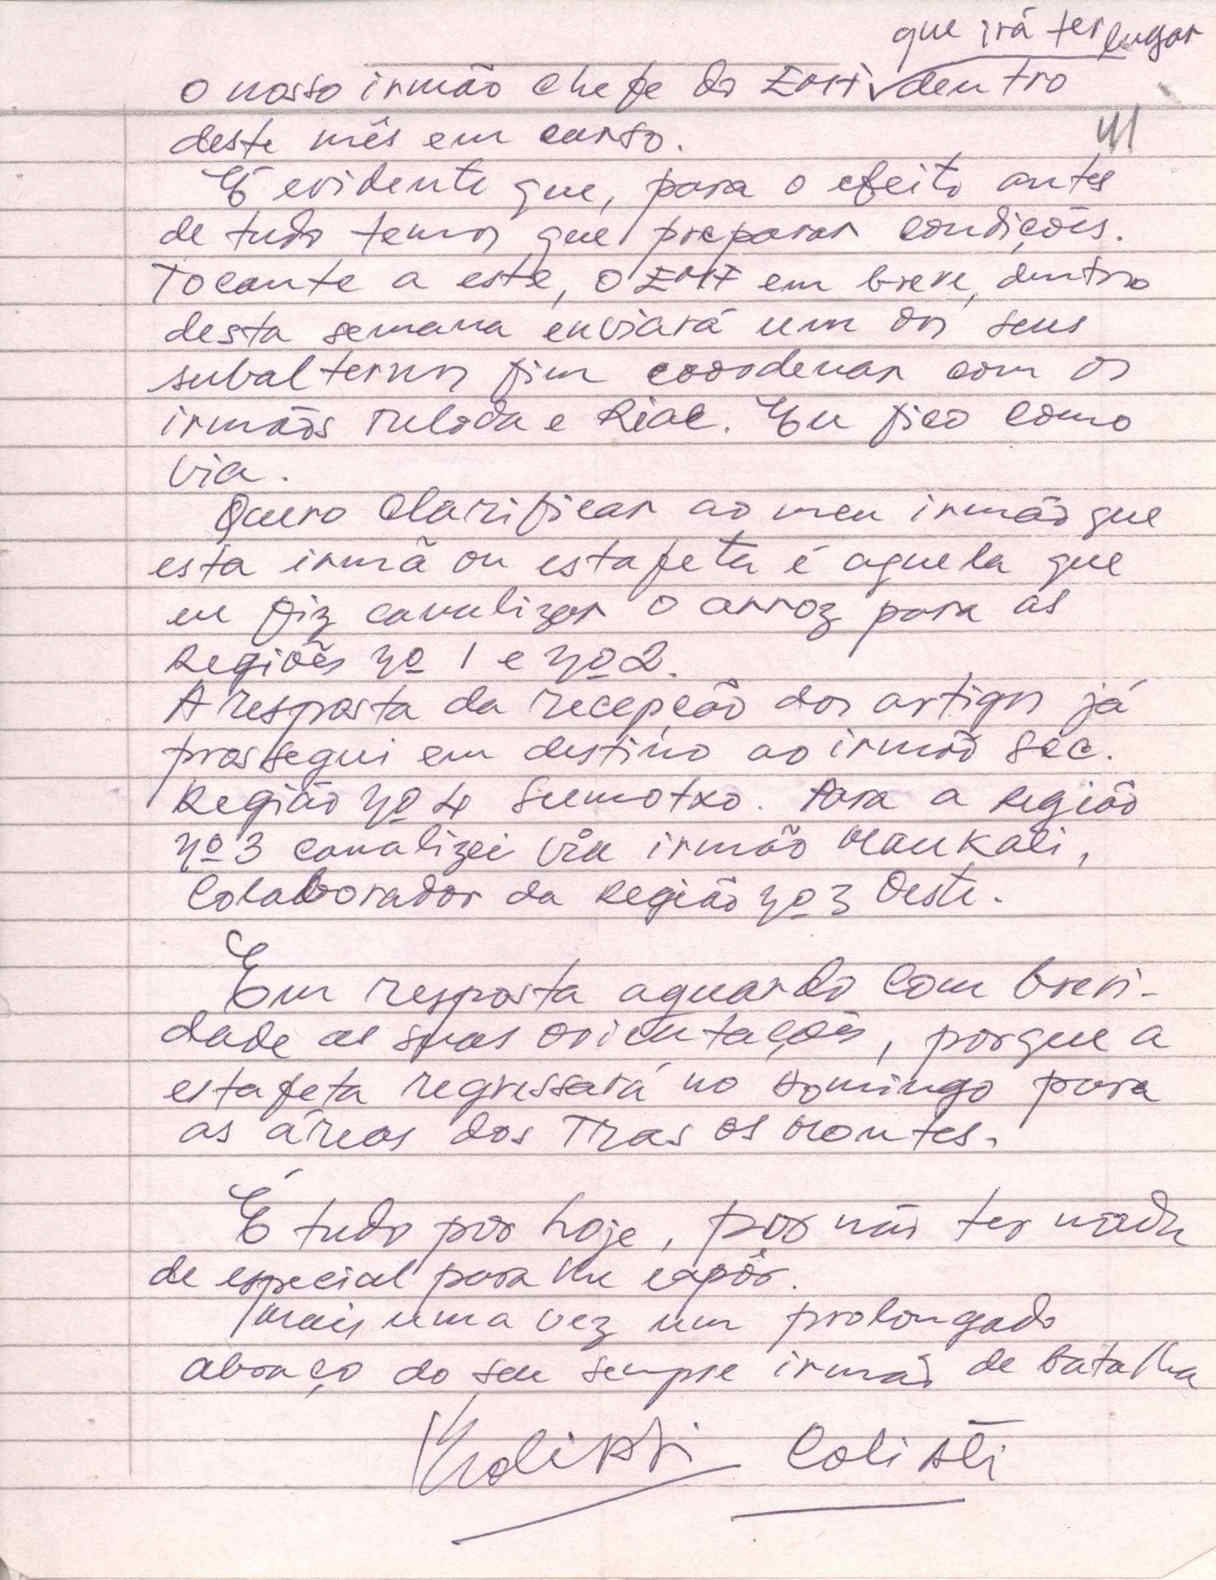 que irá ter lugar
o nosso irmão chefe do EMF dentro
deste mês em curso.
41
É evidente que, para o efeito antes
de tudo temos que preparar condições.
Tocante a este, o EMF em breve, dentro
desta semana enviará um dos seus
subalternos fim coordenar com os
irmãos Ruloda e Riak. Eu fico como
via.
Quero clarificar ao meu irmão que
esta irmã ou estafeta é aquela que
eu fiz canalizar o arroz para as
Regiões nº 1 e nº 2.
A resposta da recepção dos artigos já
prossegui em destino ao irmão Sec.
Região nº 4 Sumotxo. Para a Região
nº 3 canalizei via irmão Maukali,
Colaborador da Região nº 3 Oeste.
Em resposta aguardo com brevi-
dade as suas orientações, porque a
estafeta regressará no Domingo para
as áreas dos Tras os Montes.
É tudo por hoje, por não ter nada
de especial para lhe expôr.
Mais uma vez um prolongado
abraço do seu sempre irmão de batalha